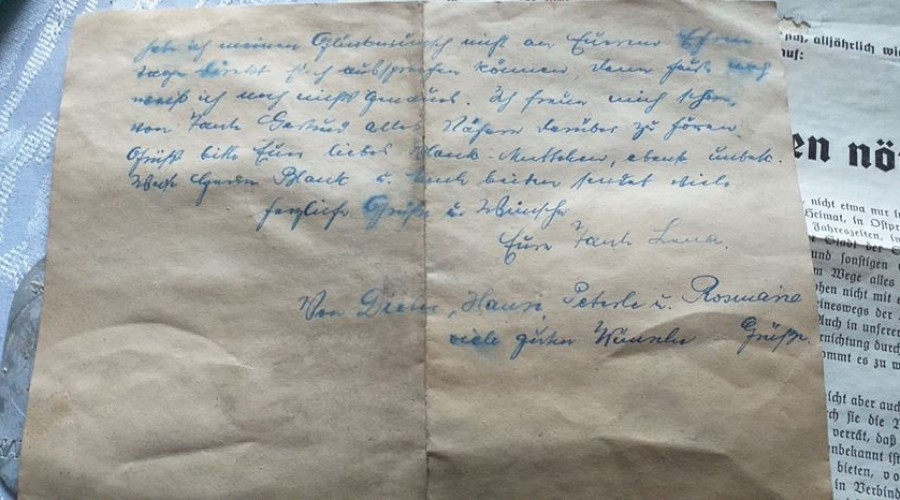 habe ich meinen Glückwunsch nicht an Eurem Ehren
tage direkt Euch aussprechen können, denn heute noch
weiß ich noch nichts Genaues. Ich freue mich schon,
von Tante Gertrud alles Nähere darüber zu hören.
Grüßt bitte Euer liebes Mütterchen, ebenso unbek.
u. Euch beiden sendet viele
herzliche Grüße u. Wünsche
Eure Tante Lena.
Von Dieter, Hans, Peterle u. Rosmarie
viele guten Wünsche Grüße.
alljährlich
en nö
nicht etwa nur
Heimat, in Ostpr
Jahreszeiten, in
Stadt der
und sonstigen
Wege alles
nicht mit
eineswegs der
Auch in unsere
nichtung durch
ommt es zu
icht aber auch
sie die
verrät, daß
nbekannt ist
bieten, vo
in Verbind